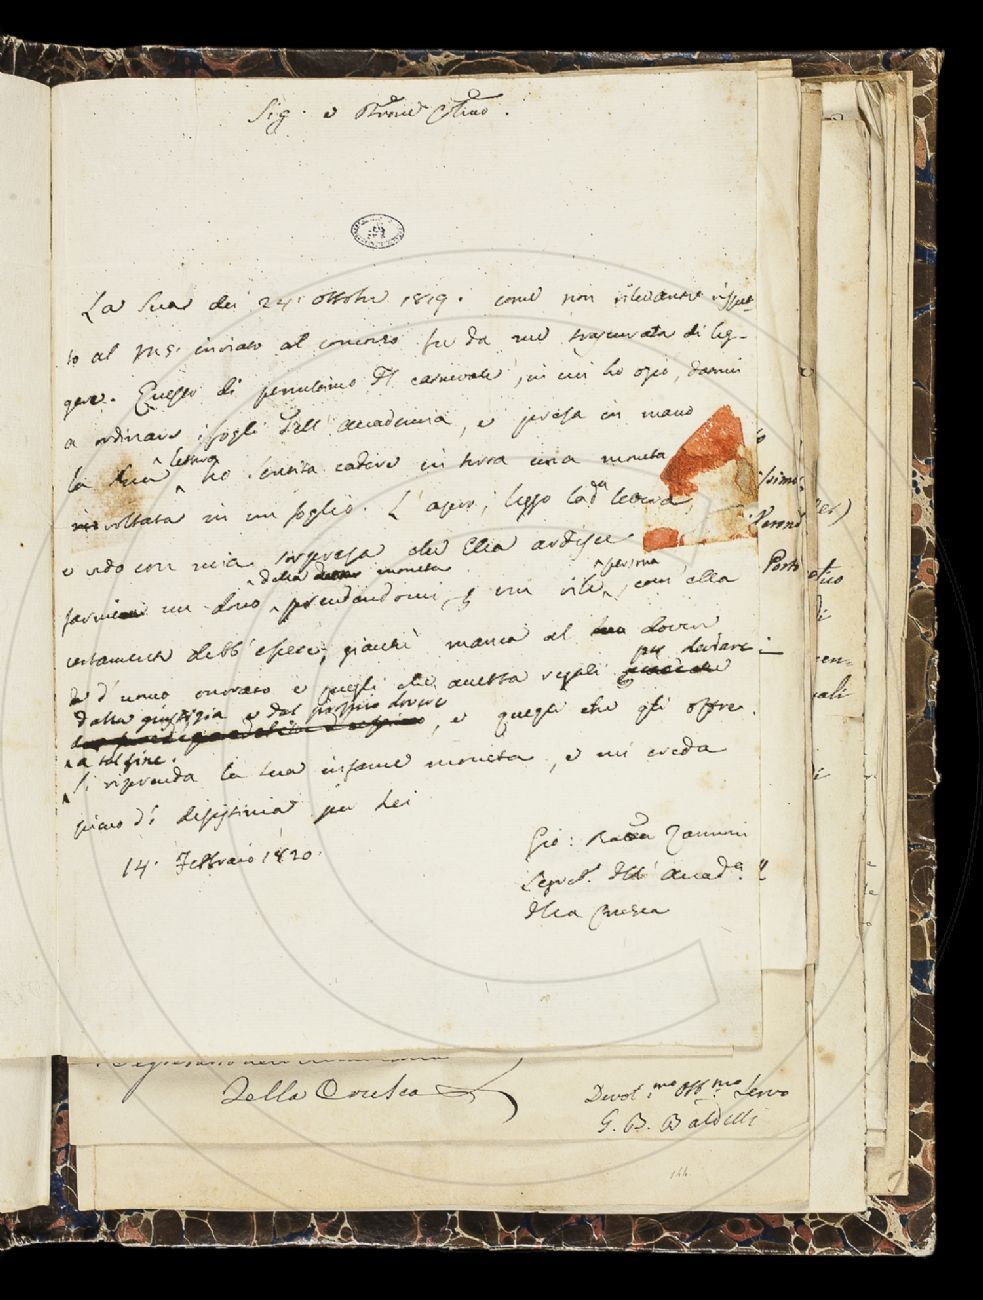 Sig. e Prone Stimo.
La Sua dei 24. ottobre 1819. come non rilevante rispet-
to al MS. inviato al concorso fu da me trascurata di leg-
gere. Questo dì penultimo del carnevale, in cui ho ozio, darmi
a ordinare i fogli dell'Accademia, e presa in mano
la Sua lettera ho sentita cadere in terra una moneta
rivoltata in un foglio. L'apro, leggo la da lettera,
e vedo con mia sorpresa che Ella ardisce
farmene un dono della moneta prendendomi per un vile, com'ella
certamente debb'essere, giacchè manca al dovere
d'uomo onorato e quegli che accetta regali per deviare
dalla giustizia e dal proprio dovere, e quegli che gli offre
a tal fine.
Si riprenda la sua infame moneta, e mi creda
pieno di disistima per Lei
14. Febbraio 1820.
Gio: Batta Zannoni
Segret.o dell'Accad.a
della Crusca
Della Crusca
Devot.mo Obb.mo Servo
G. B. Baldelli
144.